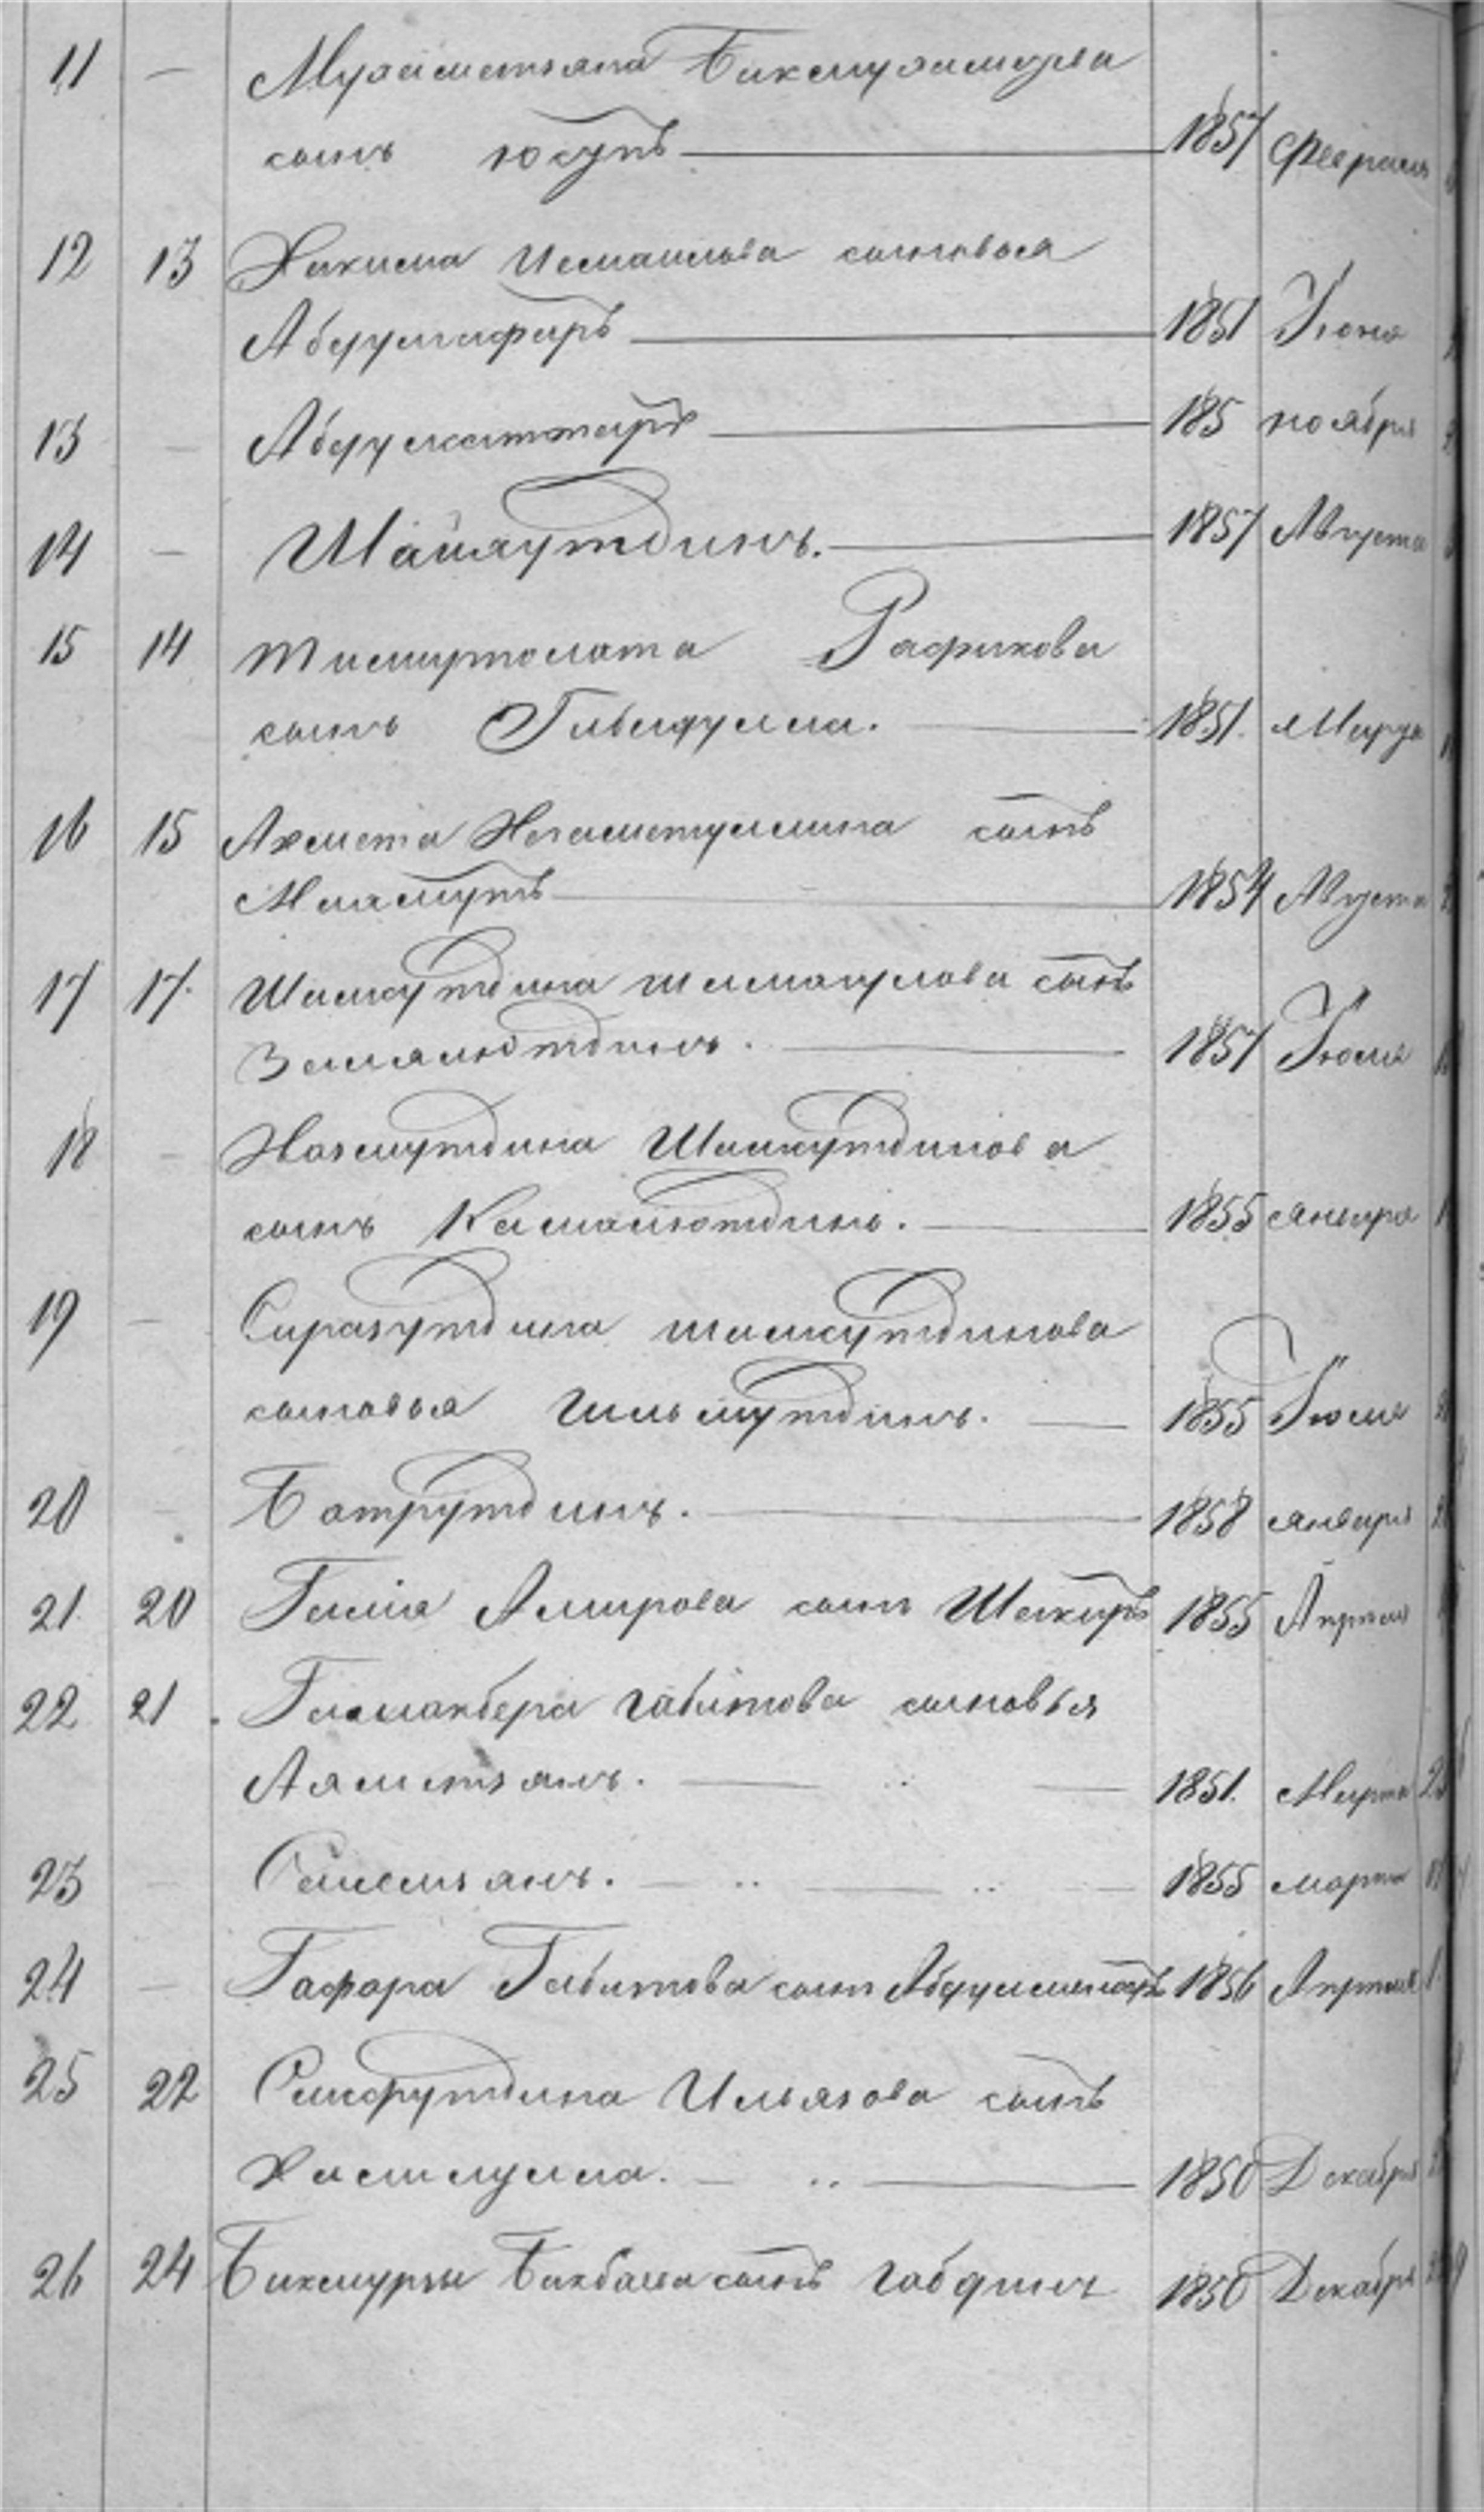 11 — Мухаметьяна Бикмухаметева
сынъ Юсупъ — 1857 Февраля
12 13 Хакима Исмаилова сыновья
Абдулгафаръ — 1851 Июня
13 — Абдулсаттаръ — 185 ноября
14 — Шайхутдинъ. — 1857 Августа
15 14 Тимирполата Рафикова
сынъ Гибадулла. — 1851. Марта
16 15 Ахмета Негаметуллина сынъ
Махмутъ — 1854 Августа
17 17. Шамсутдина Шамагулова сынъ
Земалютдинъ. — 1857 Июля
18 — Назмутдина Шамсутдинова
сынъ Камалютдинъ. — 1855 января
19 — Сиразутдина Шамсутдинова
сыновья Гильмутдинъ. — 1855 Июля
20 — Батрутдинъ. — 1858 января
21 20 Галия Амирова сынъ Шакиръ 1855 Апреля
22 21 Галиакбера Габитова сыновья
Ахметьянъ. — 1851. Марта
23 — Салемьянъ. — 1855 марта
24 — Гафара Габитова сынъ 1856 Апреля
25 22 Саифутдина Ильязова сынъ
Хисматулла. — 1850 Декабря
26 24 Бикмурзы Бикбаева сынъ 1850 Декабря